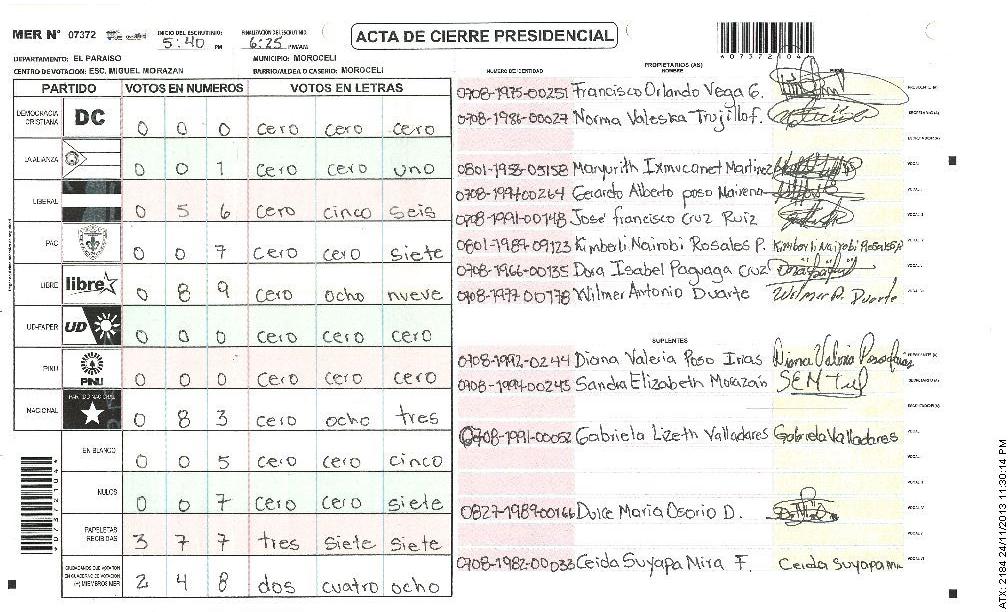 MER N° 07372 INICIO DEL ESCRUTINIO: 5:40 PM FINALIZACION DEL ESCRUTINIO: 6:25 PM/AM
ACTA DE CIERRE PRESIDENCIAL
DEPARTAMENTO: EL PARAISO MUNICIPIO: MOROCELI
CENTRO DE VOTACION: ESC. MIGUEL MORAZAN BARRIO/ALDEA O CASERIO: MOROCELI
PARTIDO VOTOS EN NUMEROS VOTOS EN LETRAS
DEMOCRACIA CRISTIANA DC 0 0 0 cero cero cero
LA ALIANZA 0 0 1 cero cero uno
LIBERAL 0 5 6 cero cinco seis
PAC 0 0 7 cero cero siete
LIBRE libre 0 8 9 cero ocho nueve
UD-FAPER UD 0 0 0 cero cero cero
PINU PINU 0 0 0 cero cero cero
NACIONAL PARTIDO NACIONAL 0 8 3 cero ocho tres
EN BLANCO 0 0 5 cero cero cinco
NULOS 0 0 7 cero cero siete
PAPELETAS RECIBIDAS 3 7 7 tres siete siete
CIUDADANOS QUE VOTARON EN CUADERNO DE VOTACION (+) MIEMBROS MER 2 4 8 dos cuatro ocho
PROPIETARIOS (AS)
NUMERO DE IDENTIDAD NOMBRE FIRMA
0708-1975-00251 Francisco Orlando Vega G.
0708-1986-00027 Norma Valeska Trujillo f.
0801-1958-05158 Margurith Ixmucanet Martinez
0708-1994-00264 Gerardo Alberto poso Mairena
0708-1991-00148 José francisco Cruz Ruiz
0801-1989-09123 Kimberli Nairobi Rosales P. Kimberli Nairobi Rosales P
0708-1966-00135 Dora Isabel Paguaga Cruz
0708-1977-00778 Wilmer Antonio Duarte Wilmer A. Duarte
SUPLENTES
0708-1992-0244 Diana Valeria Poso Irias
0708-1994-00245 Sandra Elizabeth Morazán
0708-1991-00052 Gabriela Lizeth Valladares Gabriela Valladares
0827-1989-00166 Dulce Maria Osorio D.
0708-1982-00033 Ceida Suyapa Mira F. Ceida Suyapa
ATX: 2184 24/11/2013 11:30:14 PM